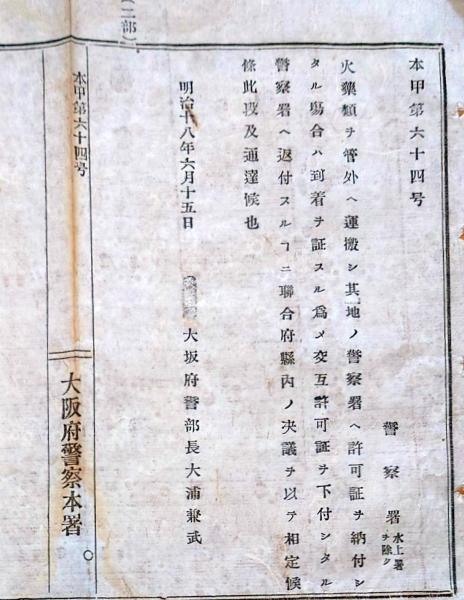 (二部)
本甲第六十四号
警察署 水上署
ヲ除ク
火藥類ヲ管外ヘ運搬シ其地ノ警察署ヘ許可証ヲ納付シ
タル場合ハ到着ヲ証スル爲メ交互許可証ヲ下付シタル
警察署ヘ返付スルヿニ聯合府縣内ノ决議ヲ以テ相定候
條此段及通達候也
明治十八年六月十五日
大坂府警部長大浦兼武
本甲第六十四号
大阪府警察本署